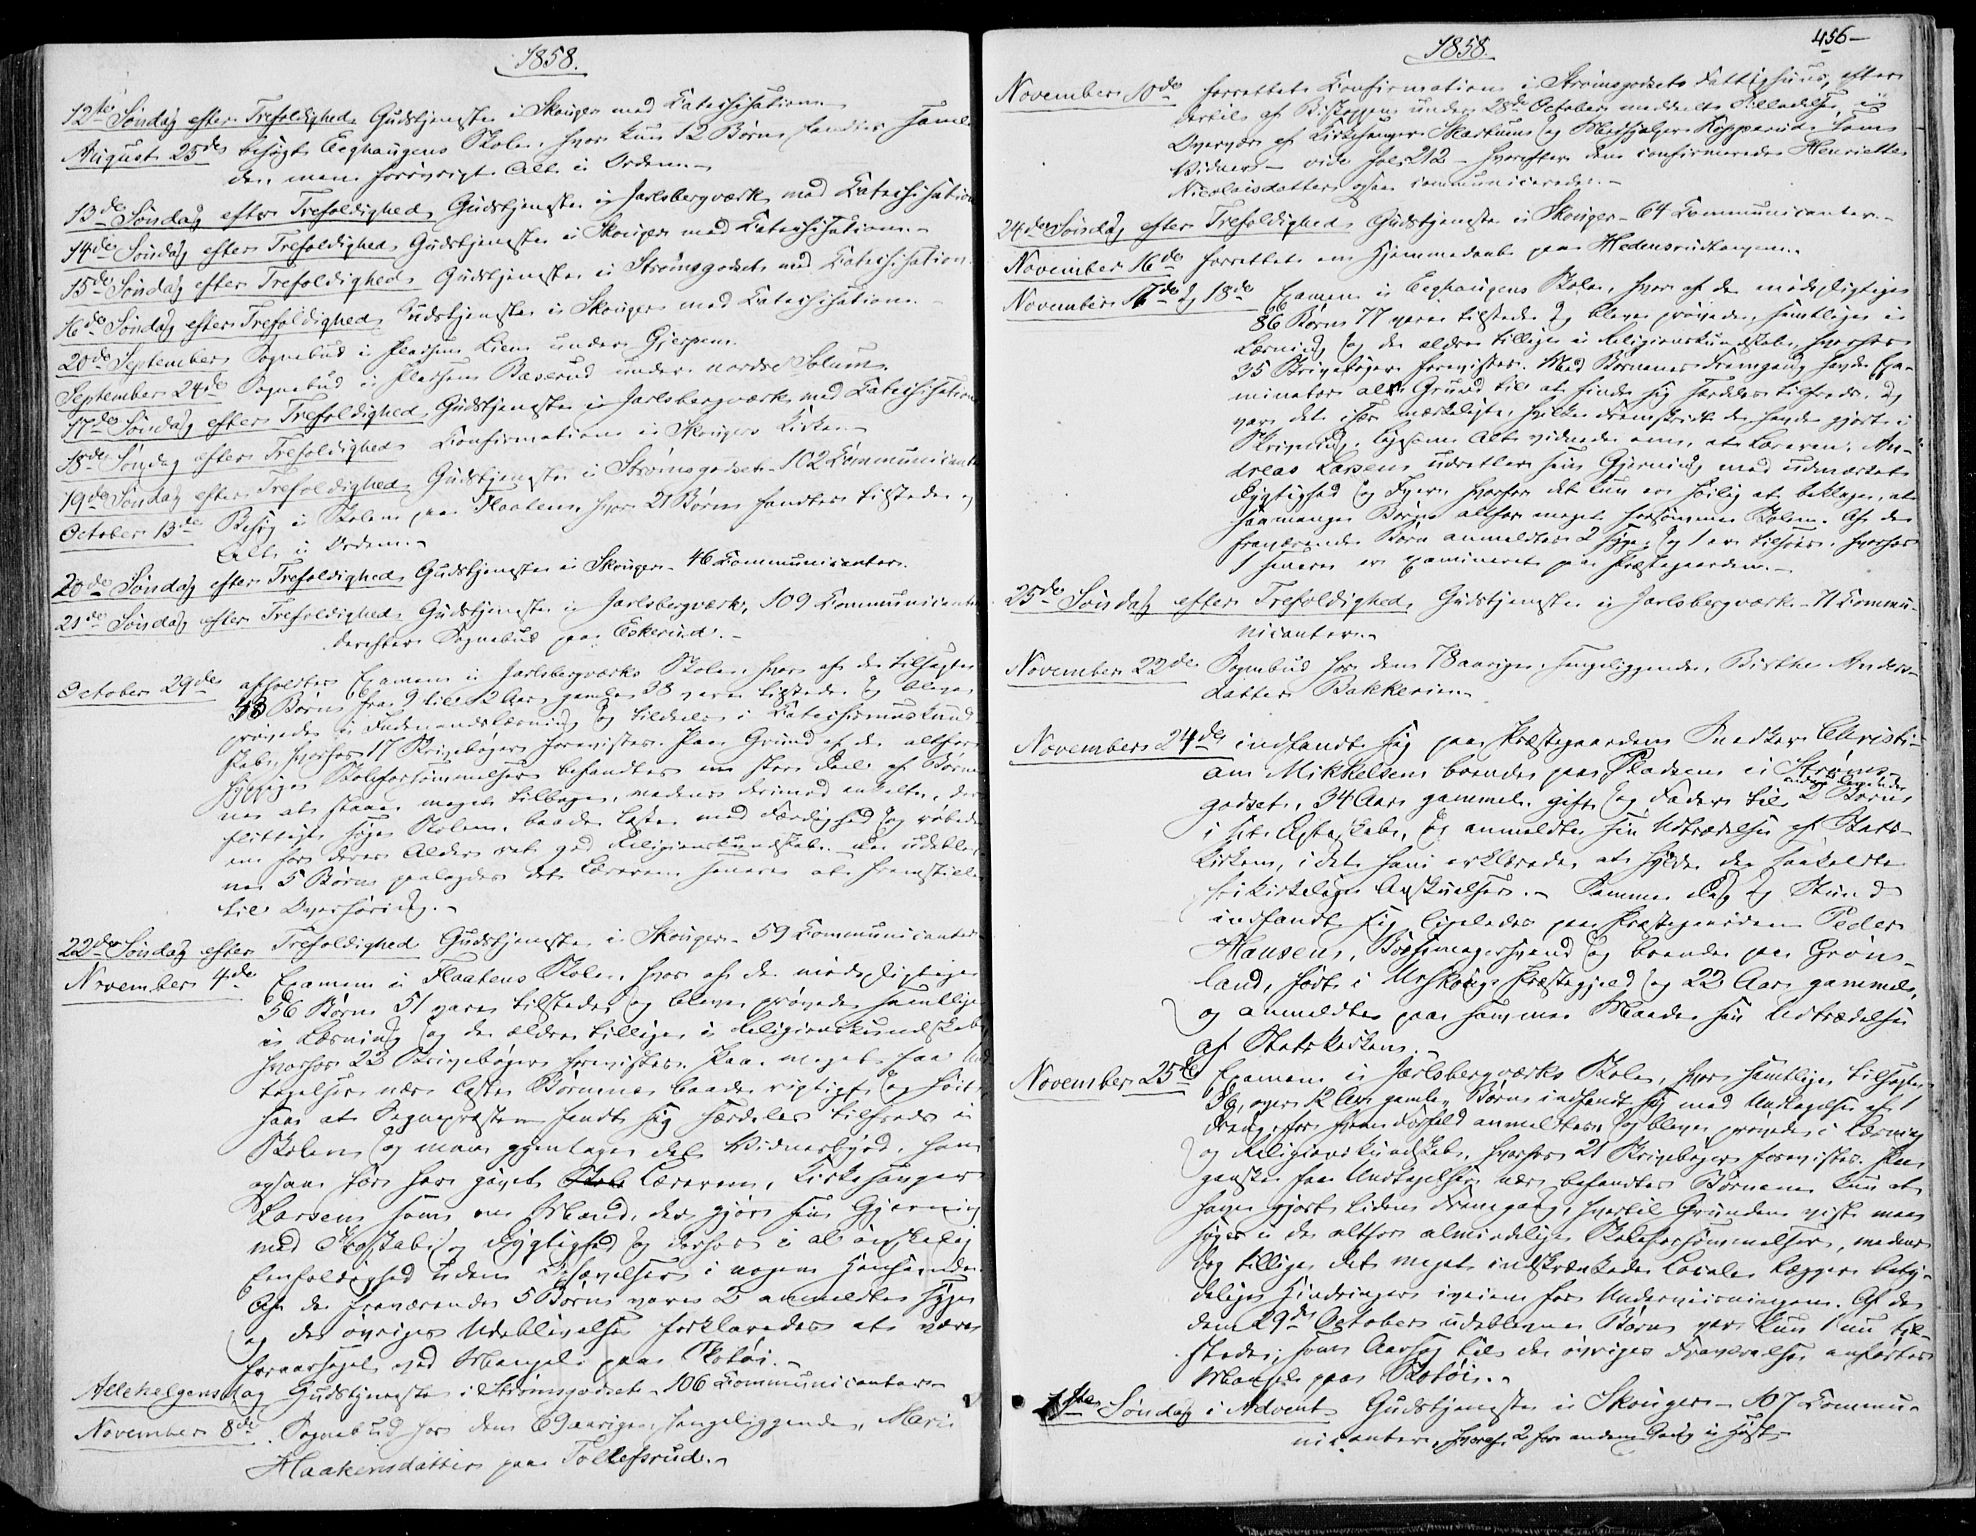 1858.
12te Søndag efter Trefoldighed Gudstjeneste i Skouger med Catechisation.
August 25de besøgte Eeghaugens Skole, hvor kun 12 Børn fandtes samle-
de, men forøvrigt Alt i Orden.
13de Søndag efter Trefoldighed Gudstjeneste i Jarlsbergværk med Catechisation
14de Søndag efter Trefoldighed Gudstjeneste i Skouger med Catechisation.
15de Søndag efter Trefoldighed Gudstjeneste i Strømsgodset med Catechisation.
16de Søndag efter Trefoldighed Gudstjeneste i Skouger med Catechisation.
20de September Sognebud i Pladsen Lien under Gjerpen.
September 24de Sognebud i Pladsen Baserud under nordre Solum.
17de Søndag efter Trefoldighed Gudstjeneste i Jarlsbergværk med Catechisation
18de Søndag efter Trefoldighed Confirmation i Skougers Kirke.
19de Søndag efter Trefoldighed Gudstjeneste i Strømsgodset - 102 Communicanter
October 13de Besøg i Skolen paa Flaaten, hvor 21 Børn fandtes tilstede og
Alt i Orden.
20de Søndag efter Trefoldighed Gudstjeneste i Skouger - 46 Communicanter.
21de Søndag efter Trefoldighed Gudstjeneste i Jarlsbergværk, 109 Communicanter
derefter Sognebud paa Eskerud.
October 29de afholdtes Examen i Jarlsbergværks Skole, hvor af de tilsagte
43 Børn fra 9 til 12 Aar gamle 38 vare tilstede og bleve
prøvede i Indenadslæsning og tildeels i Catechismuskund-
skab, hvorhos 17 Skrivebøger forevistes. Paa Grund af de altfor
hyppige Skoleforsømmelser befandtes en stor Deel af Børne-
ne at staae meget tilbage, medens derimod enkelte, der
flittigt søge Skolen, baade læste med Færdighed og røbede
en for deres Alder ret god Religionskundskab. De udeblev-
ne 5 Børn paalagdes det Læreren senere at fremstille
til Overhøring.
22de Søndag efter Trefoldighed Gudstjeneste i Skouger - 59 Communicanter
November 4de Examen i Flaatens Skole, hvor af de mødepligtige
56 Børn 51 vare tilstede og bleve prøvede samtlige
i Læsning og de ældre tillige i Religionskundskab,
hvorhos 23 Skrivebøger forevistes. Paa meget faa Und-
tagelser nær læste Børnene baade rigtigt og høit,
saa at Sognepræsten fandt sig særdeles tilfreds i
Skolen og maa gjentage det Vidnesbyrd, han
ogsaa før har givet Læreren, Kirkesanger
Larsen som en Mand, der gjør sin Gjerning
med Troskab og Dygtighed og derhos i al ønskelig
Eenfoldighed uden i nogen Henseende.
Af de fraværende 5 Børn vare 2 anmeldte syge
og de øvriges Udeblivelse forklaredes at være
foraarsaget ved Mangel paa Skotøi.
Allehelgensdag Gudstjeneste i Strømsgodset - 106 Communicanter
November 8de Sognebud hos den 69aarige, sengeliggende, Marie
Haakensdatter paa Tollefsrud.
1858.
456
November 10de forrettet Confirmation i Strømsgodsets Fattighuus, efter
dertil af Biskoppen under 28de October meddelt Tilladelse, i
Overvær af Kirkesanger Markuus og Medhjælper Kopperud som
Vidner - vide fol. 212 - hvorefter den confirmerede Henriette
Nicolaisdatter ogsaa communicerede.
24de Søndag efter Trefoldighed Gudstjeneste i Skouger - 64 Communicanter.
November 16de forrettet en Hjemmedaab paa Hedensrudhaugen.
November 17de og 18de Examen i Eeghaugens Skole, hvor af de mødepligtige
86 Børn 77 vare tilstede og bleve prøvede, samtlige i
Læsning og de ældre tillige i Religionskundskab, hvorhos
35 Skrivebøger forevistes. Med Børnenes Fremgang havde Exa-
minator al Grund til at finde sig særdeles tilfreds, og
var det især mærkeligt, hvilke Fremskridt de havde gjort i
Skrivning, ligesom Alt vidnede om, at Læreren, An-
dreas Larsen udretter sin Gjerning med udmærket
Dygtighed og Iver, hvorfor det kun er høilig at beklage, at
saamange Børn altfor meget forsømmer Skolen. Af de
fraværende Børn anmeldtes 2 syge og 1 er tilføre, hvorhos
1 senere er examineret paa Præstegaarden.
25de Søndag efter Trefoldighed Gudstjeneste i Jarlsbergværk - 71 Commu-
nicanter.
November 22de Sognebud hos den 78aarige, sengeliggende, Birthe Anders-
datter Bakkerien.
November 24de indfandt sig paa Præstegaarden Snedker Christi-
an Mikkelsen boende paa Pladsen i Strøms-
godset, 34 Aar gammel, gift og Fader til 2 Børn
i sit Ægteskab, og anmeldte sin Udtrædelse af Stats-
kirken, idet han erklærede at hylde de saakaldte
frikirkelige Anskuelser. - Samme Dag og Stund
indfandt sig ligeledes paa Præstegaarden Peder
Hansen, Bøssemagersvend og boende paa Grøn-
land, født i Urskougs Præstegjeld og 22 Aar gammel,
og anmeldte paa samme Maade sin Udtrædelse
af Statskirken.
November 25de Examen i Jarlsbergværks Skole, hvor samtlige tilsagte
36, over 12 Aar gamle, Børn indfandt sig med Undtagelse af 1
Dreng, for hvem Forfald anmeldtes, og bleve prøvede i Læsning
og Religionskundskab, hvorhos 21 Skrivebøger forevistes. Paa
ganske faa Undtagelser nær befandtes Børnene kun at
have gjort liden Fremgang, hvortil Grunden vist maa
søges i de altfor almindelige Skoleforsømmelser, medens
dog tillige det meget indskrænkede Locale lægger bety-
delige Hindringer iveien for Underviisningen. Af de
den 29de October udeblevne Børn vare kun 1 nu til-
stede; som Aarsag til de øvriges Fraværelse anførtes
Mangel paa Skotøi.
1ste Søndag i Advent Gudstjeneste i Skouger - 107 Commu-
nicanter, hvoraf 2 for anden Gang i Høst.